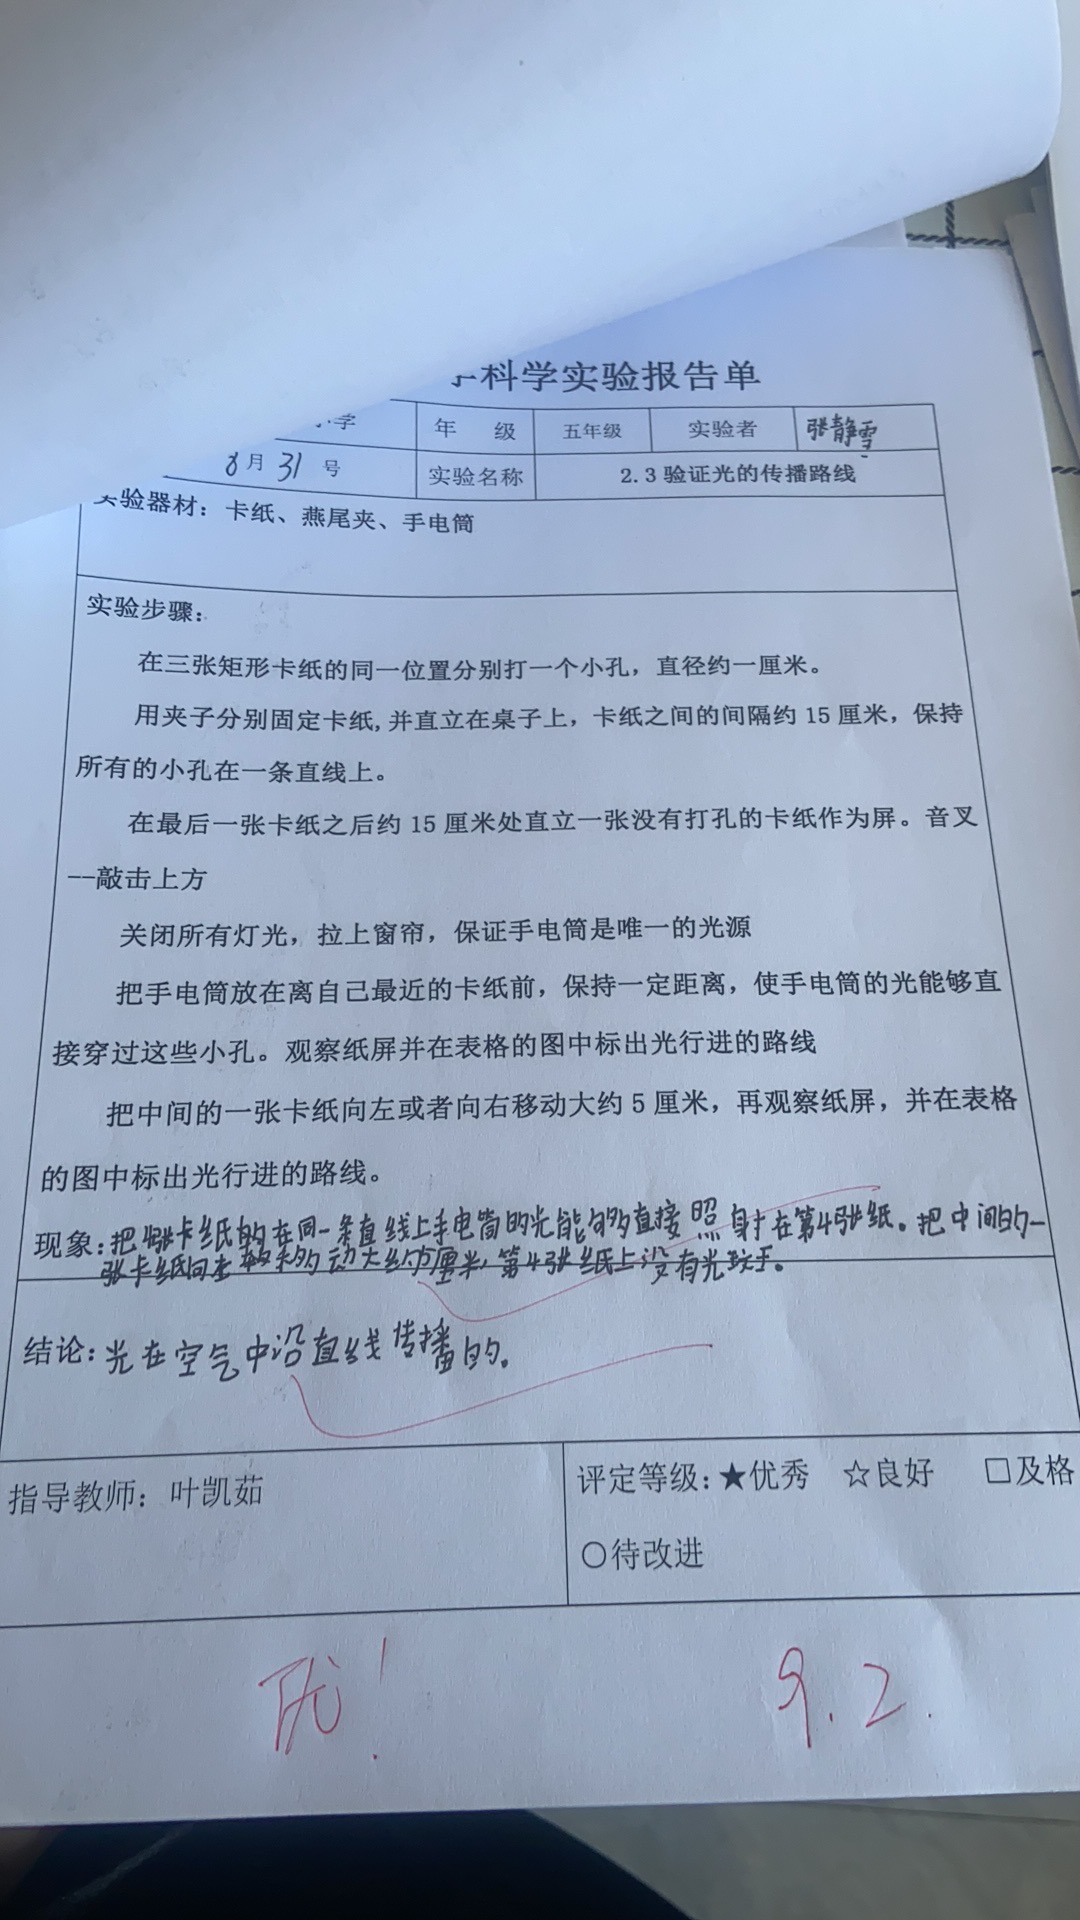 科学实验报告单
年 级 五年级 实验者 张静雪
8月31号 实验名称 2.3验证光的传播路线
实验器材：卡纸、燕尾夹、手电筒
实验步骤：
在三张矩形卡纸的同一位置分别打一个小孔，直径约一厘米。
用夹子分别固定卡纸,并直立在桌子上，卡纸之间的间隔约15厘米，保持
所有的小孔在一条直线上。
在最后一张卡纸之后约15厘米处直立一张没有打孔的卡纸作为屏。音叉
--敲击上方
关闭所有灯光，拉上窗帘，保证手电筒是唯一的光源
把手电筒放在离自己最近的卡纸前，保持一定距离，使手电筒的光能够直
接穿过这些小孔。观察纸屏并在表格的图中标出光行进的路线
把中间的一张卡纸向左或者向右移动大约5厘米，再观察纸屏，并在表格
的图中标出光行进的路线。
现象：把卡纸的在同一条直线上手电筒的光能够直接照射在第4张纸。把中间的一
张卡纸向左动大约厘米，第4张纸上没有光
结论：光在空气中沿直线传播的。
指导教师：叶凯茹
评定等级：★优秀 ☆良好 □及格
○待改进
优！
9.2.